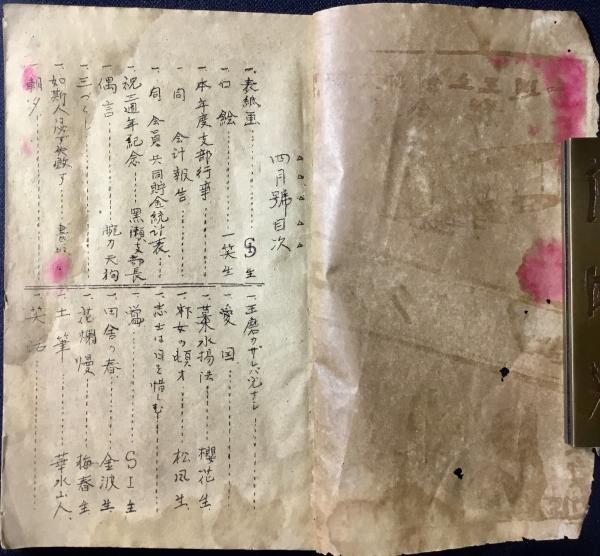 四月號目次
一、表紙画 SS生
一、口絵 一笑生
一、本年度支部行事
一、同 会計報告
一、同 会員共同貯金統計表
一、祝三週年紀念 黒瀬支部長
一、偶言 腕力天狗
一、三づくし
一、如斯人は必ず失敗す
一、朝夕
一、玉磨カザレバ光ナシ
一、愛国
一、葉水揚法 櫻花生
一、下女の頓才 松風生
一、志士は日を惜しむ
一、鶯 SI生
一、田舎の春 金波生
一、花爛慢 梅春生
一、土筆 華水山人
一、笑話